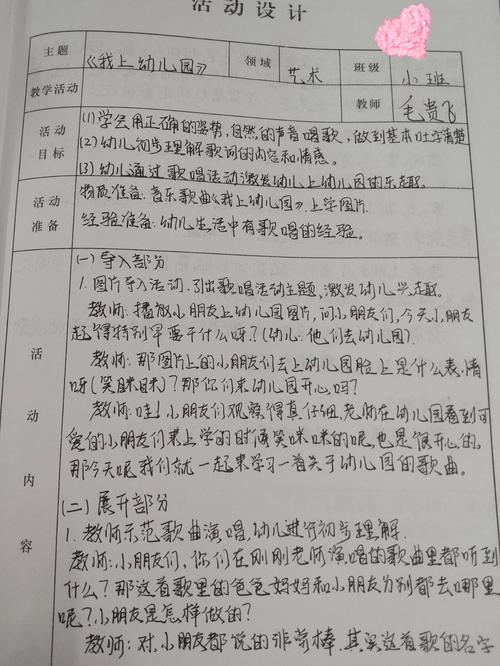 活动设计
主题 《我上幼儿园》 领域 艺术 班级 小班
教学活动 教师 毛贵飞
活动目标
(1)学会用正确的姿势,自然的声音唱歌,做到基本吐字清楚
(2)幼儿初步理解歌词的内容和情感。
(3)幼儿通过歌唱活动激发幼儿上幼儿园的乐趣.
活动准备
物质准备:音乐歌曲《我上幼儿园》.上学图片.
经验准备:幼儿生活中有歌唱的经验。
活动内容
(一)导入部分
1.图片导入活动.引出歌唱活动主题,激发幼儿兴趣.
教师:播放小朋友上幼儿园图片,问小朋友们,今天小朋友
起得特别早要干什么呀?(幼儿:他们去幼儿园).
教师:那图片上的小朋友们去上幼儿园脸上是什么表情
呀(笑眯眯)?那你们来幼儿园开心吗?
教师:哇!小朋友们观察得真仔细,老师在幼儿园看到可
爱的小朋友们来上学的时候笑咪咪的呢,也是很开心的。
那今天呢我们就一起来学习一首关于幼儿园的歌曲。
(二)展开部分
1.教师示范歌曲演唱,幼儿进行初步理解.
教师:小朋友们,你们在刚刚老师演唱的歌曲里都听到
什么?那这首歌里的爸爸妈妈和小朋友分别都去哪里
呢?小朋友是怎样做的?
教师:对,小朋友都说的非常棒,其实这首歌的名字